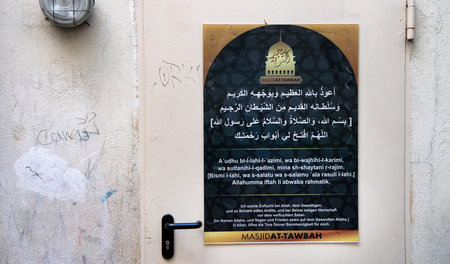 MASJID AT-TAWBAH
أعوذُ باللهِ العظيمِ وبوَجْهِهِ الكريمِ
وَسُلْطَانِهِ القَديمِ مِنَ الشَّيْطَانِ الرَّجيمِ
[بِسْمِ اللهِ، وَالصَّلاةُ وَالسَّلامُ على رَسولِ اللهِ]
اللَّهُمَّ افْتَحْ لي أَبوَابَ رَحْمَتِكَ
A'udhu bi-l-lahi-l-'azimi, wa bi-wajhihi-l-karimi,
wa sultanihi-l-qadimi, mina sh-shaytani r-rajim.
[Bismi l-lahi, wa s-salatu wa s-salamu 'ala rasuli l-lahi.]
Allahumma iftah li abwaba rahmatik.
Ich suche Zuflucht bei Allah, dem Gewaltigen,
und zu Seinem edlen Antlitz, und bei Seiner ewigen Herrschaft
vor dem verfluchten Satan.
[Im Namen Allahs, und Segen und Frieden seien auf dem Gesandten Allahs.]
O Allah, öffne die Tore Deiner Barmherzigkeit für mich.
MASJIDAT-TAWBAH